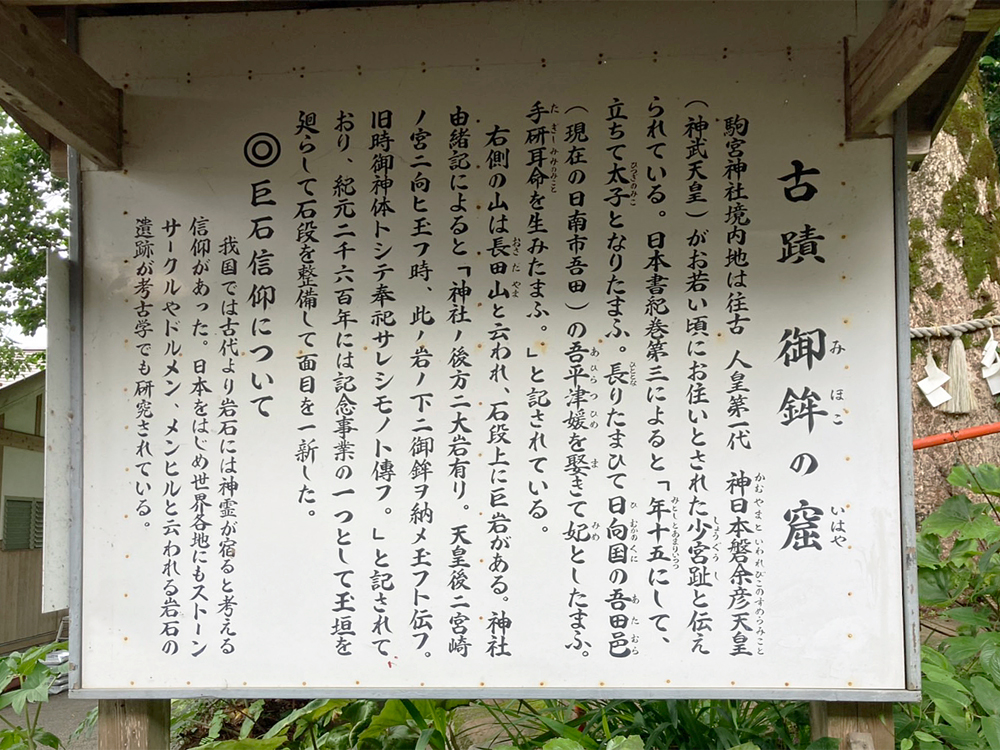 古蹟　御鉾の窟
駒宮神社境内地は往古　人皇第一代　神日本磐余彦天皇
（神武天皇）がお若い頃にお住いとされた少宮趾と伝え
られている。日本書紀巻第三によると「年十五にして、
立ちて太子となりたまふ。長りたまひて日向国の吾田邑
（現在の日南市吾田）の吾平津媛を娶きて妃としたまふ。
手研耳命を生みたまふ。」と記されている。
右側の山は長田山と云われ、石段上に巨岩がある。神社
由緒記によると「神社ノ後方ニ大岩有り。天皇後ニ宮崎
ノ宮ニ向ヒ玉フ時、此ノ岩ノ下ニ御鉾ヲ納メ玉フト伝フ。
旧時御神体トシテ奉祀サレシモノト傳フ。」と記されて
おり、紀元二千六百年には記念事業の一つとして玉垣を
廻らして石段を整備して面目を一新した。
◎巨石信仰について
我国では古代より岩石には神霊が宿ると考える
信仰があった。日本をはじめ世界各地にもストーン
サークルやドルメン、メンヒルと云われる岩石の
遺跡が考古学でも研究されている。